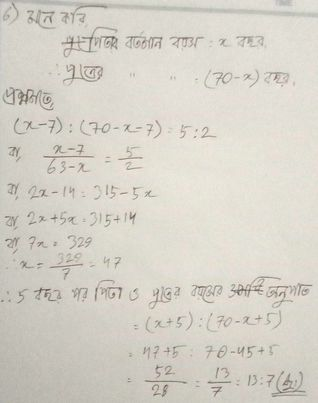 ৬) মনে করি,
পিতার বর্তমান বয়স : x বছর
∴ পুত্রের " " : (70-x) বছর.
প্রশ্নমতে,
(x-7) : (70-x-7) = 5:2
বা, x-7/63-x = 5/2
বা, 2x-14 = 315-5x
বা, 2x+5x = 315+14
বা, 7x = 329
∴ x = 329/7 = 47
∴ 5 বছর পর পিতা ও পুত্রের বয়সের অনুপাত
= (x+5) : (70-x+5)
= 47+5 : 70-45+5
= 52/28 = 13/7 = 13:7